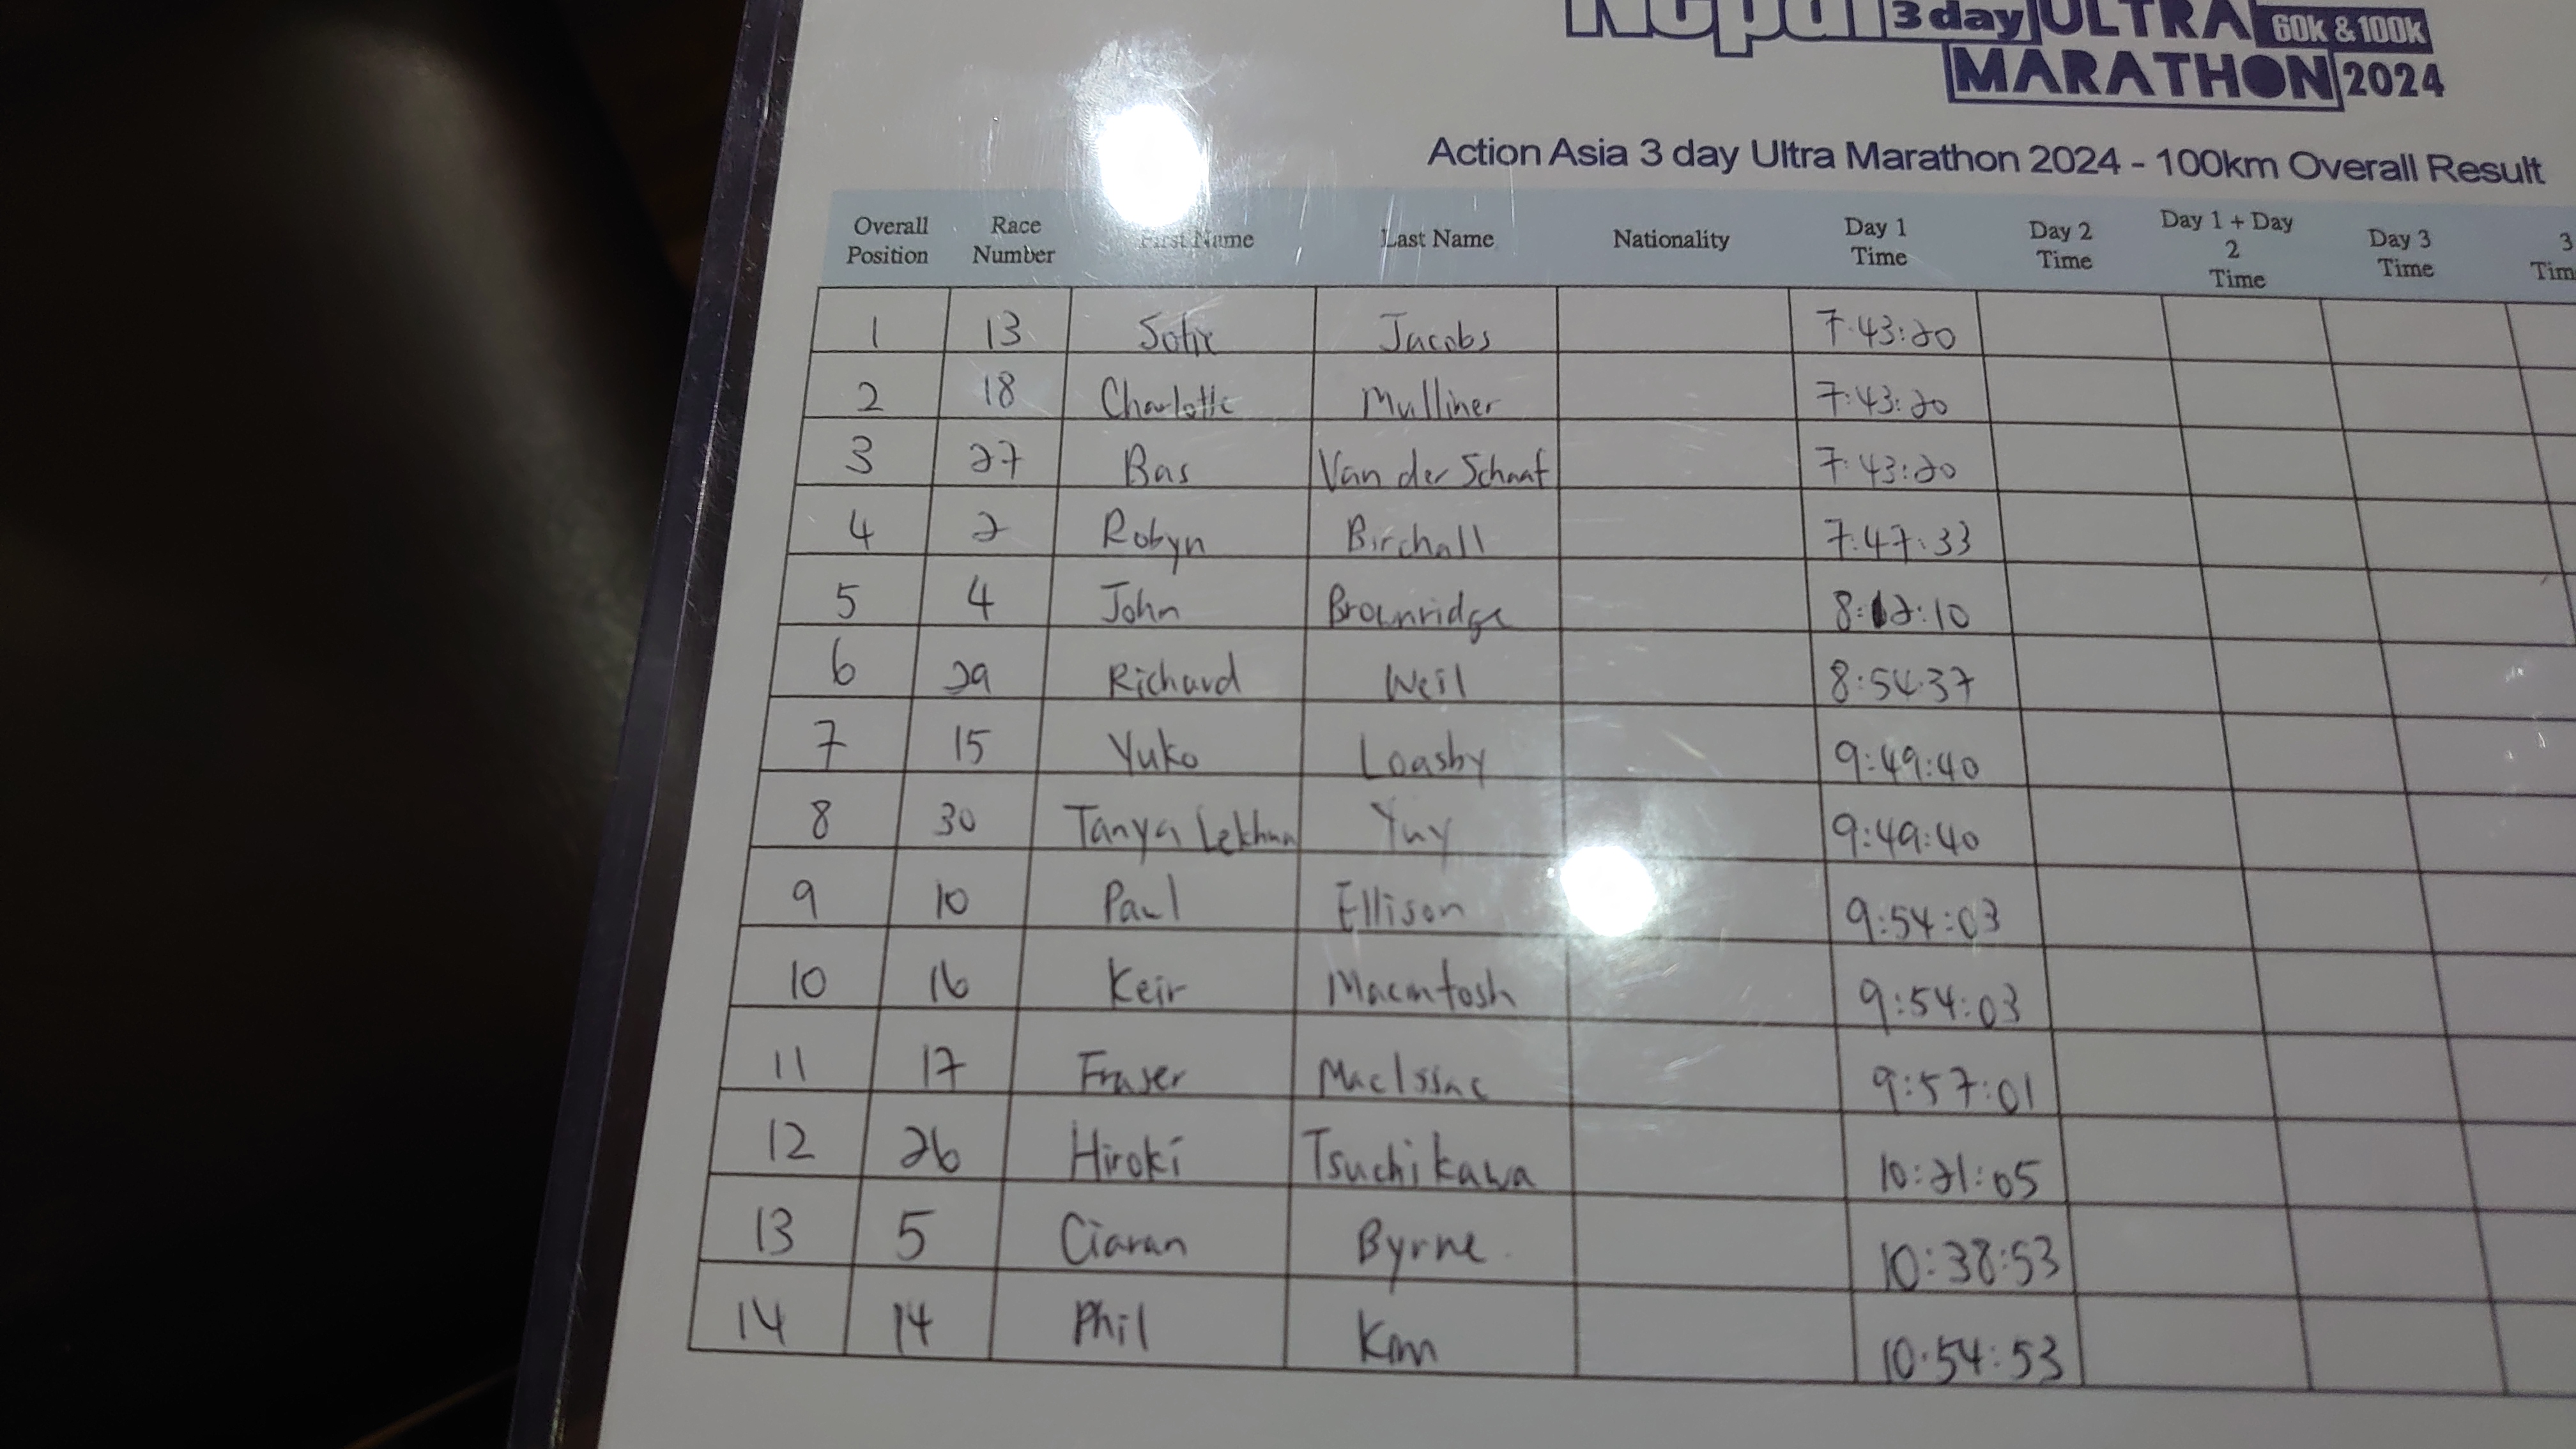 Nepal 3 day ULTRA 60K & 100K
MARATHON 2024
Action Asia 3 day Ultra Marathon 2024 - 100km Overall Result
Overall Position Race Number First Name Last Name Nationality Day 1 Time Day 2 Time Day 1 + Day 2 Time Day 3 Time 3
1 13 Sofie Jacobs 7:43:20
2 18 Charlotte Mulliner 7:43:20
3 27 Bas Van der Schaaf 7:43:20
4 2 Robyn Birchall 7:47:33
5 4 John Brownridge 8:12:10
6 29 Richard Weil 8:54:37
7 15 Yuko Loasby 9:49:40
8 30 Tanya 9:49:40
9 10 Paul Ellison 9:54:03
10 16 Keir Macintosh 9:54:03
11 17 Fraser MacIssac 9:57:01
12 26 Hiroki Tsuchikawa 10:21:05
13 5 Ciaran Byrne 10:38:53
14 14 Phil Kim 10:54:53